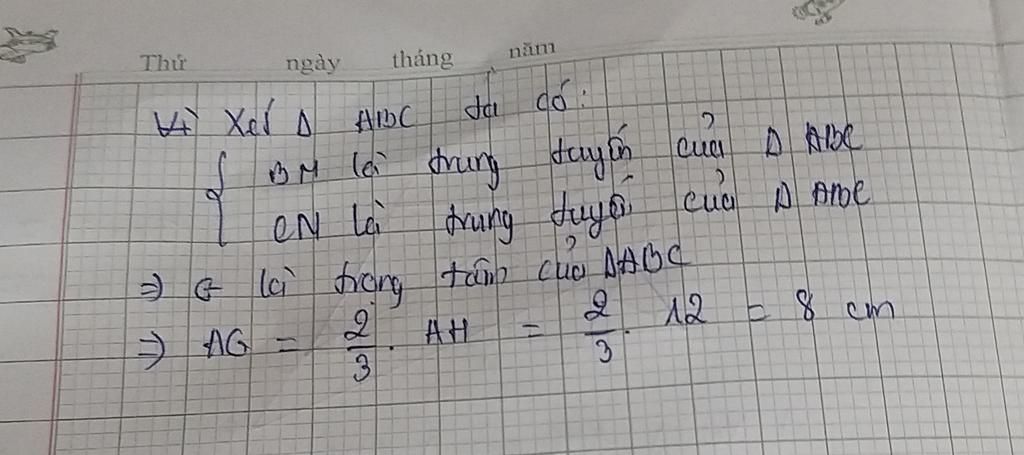 Thứ ngày tháng năm
Xét Δ ABC ta có:
{ BM là trung tuyến của Δ ABC
CN là trung tuyến của Δ ABC
⇒ G là trọng tâm của ΔABC
⇒ AG = 2/3 . AH = 2/3 . 12 = 8 cm